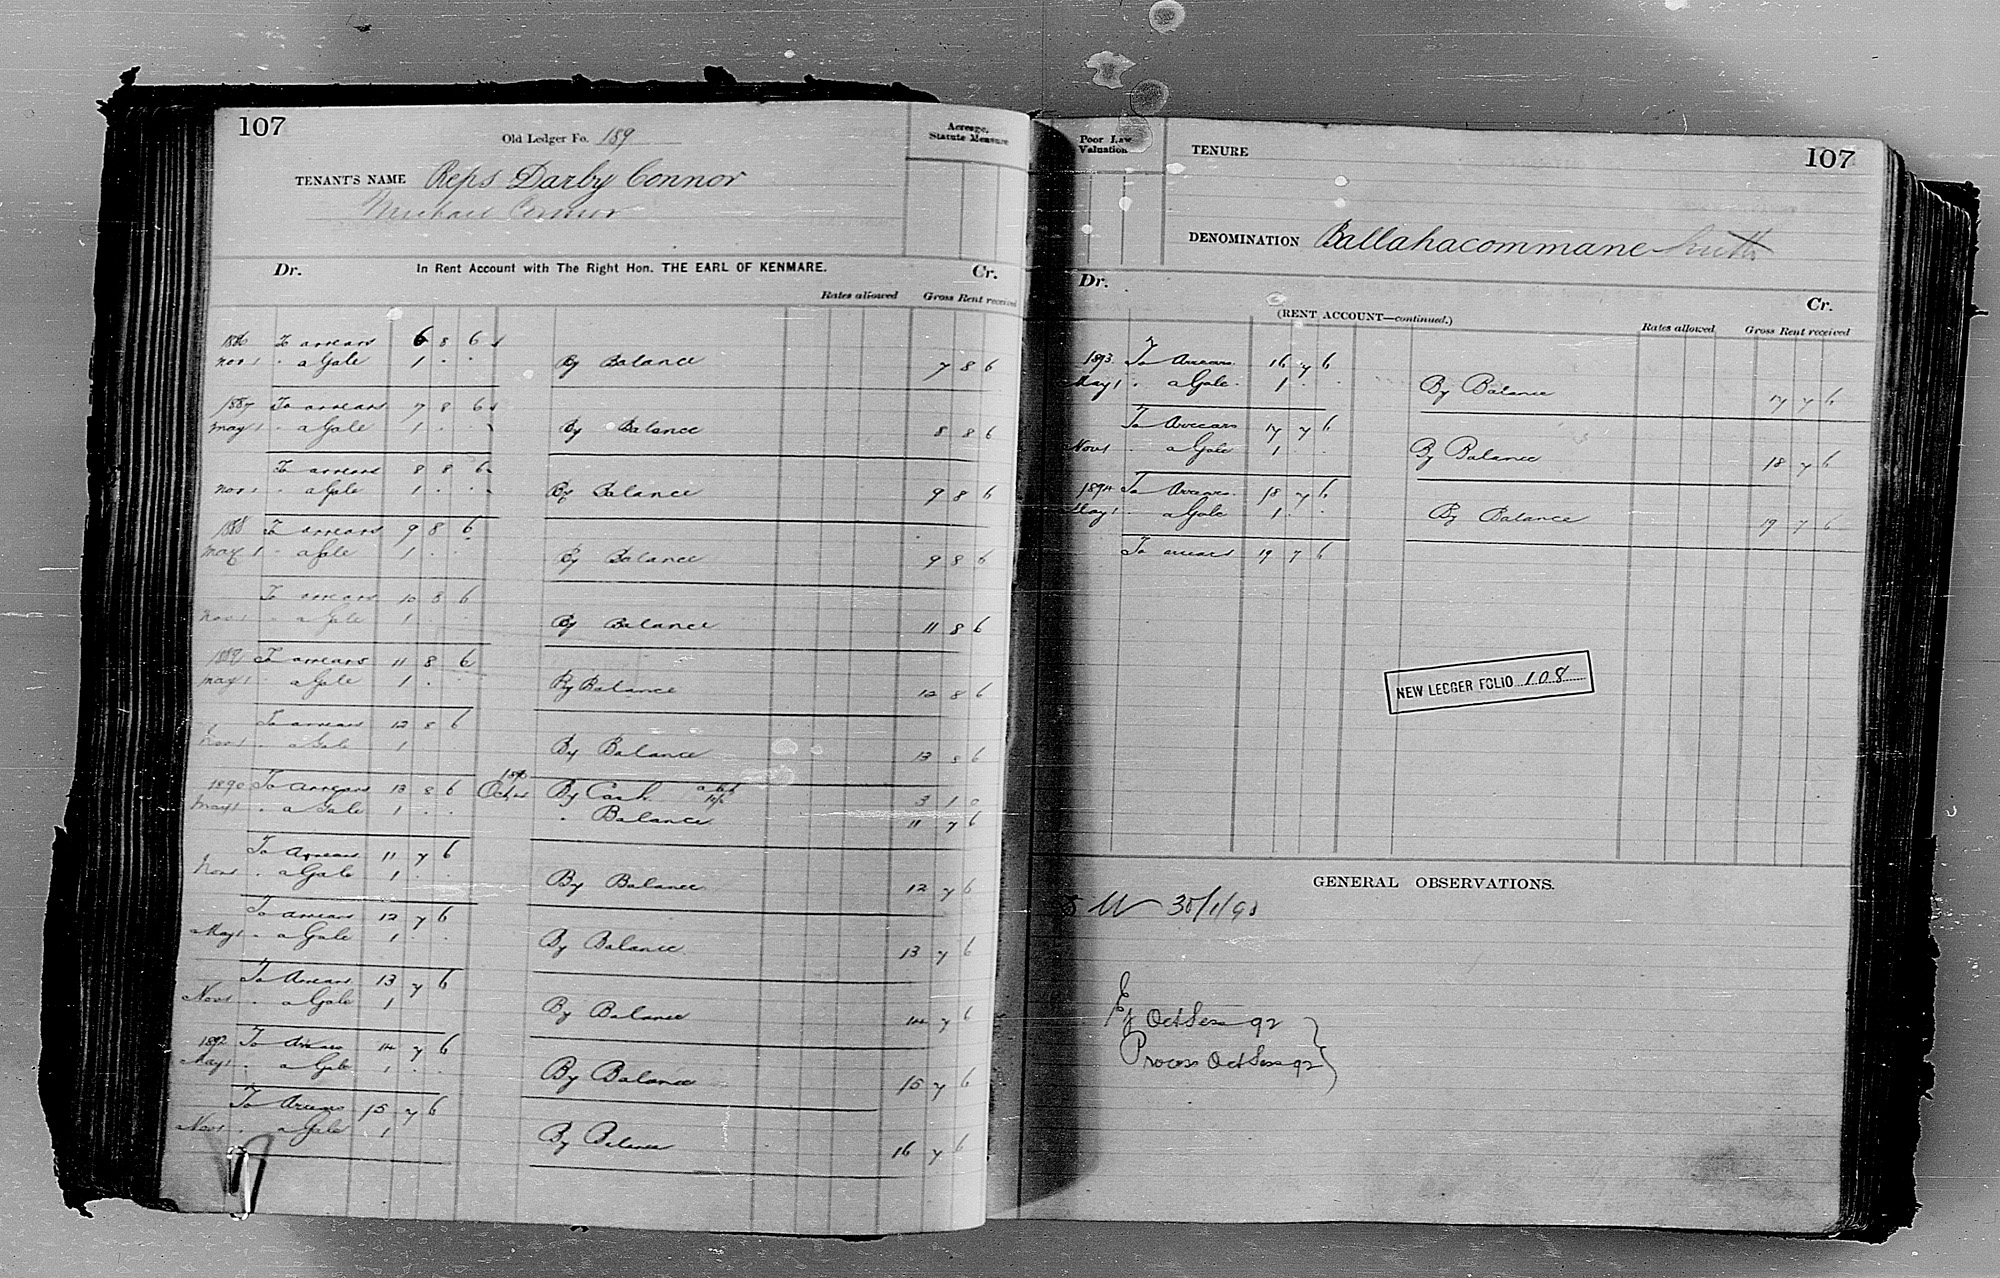 107
Old Ledger Fo. 189
Acreage, Statute Measure
TENANT'S NAME Reps Darby Connor
Michael Connor
Dr. In Rent Account with The Right Hon. THE EARL OF KENMARE. Cr.
Rates allowed Gross Rent received
1886 To arrears 6 8 6
Nov 1 " a Gale 1 " " By Balance 7 8 6
1887 To arrears 7 8 6
May 1 " a Gale 1 " " By Balance 8 8 6
To arrears 8 8 6
Nov 1 " a Gale 1 " " By Balance 9 8 6
1888 To arrears 9 8 6
May 1 " a Gale 1 " " By Balance 9 8 6
To arrears 10 8 6
Nov 1 " a Gale 1 " " By Balance 11 8 6
1889 To arrears 11 8 6
May 1 " a Gale 1 " " By Balance 12 8 6
To arrears 12 8 6
Nov 1 " a Gale 1 By Balance 13 8 6
1890 To arrears 13 8 6 1890 Oct By Cash 3 1 0
May 1 " a Gale 1 " " " Balance 11 7 6
To Arrears 11 7 6
Nov 1 " a Gale 1 " " By Balance 12 7 6
To arrears 12 7 6
May 1 " a Gale 1 " " By Balance 13 7 6
To Arrears 13 7 6
Nov 1 " a Gale 1 By Balance 14 7 6
1892 To Arrears 14 7 6
May 1 " a Gale 1 " " By Balance 15 7 6
To Arrears 15 7 6
Nov 1 " a Gale 1 By Balance 16 7 6
Poor Law Valuation
TENURE
107
DENOMINATION Ballahacommane South
Dr. Cr.
(RENT ACCOUNT—continued.)
Rates allowed Gross Rent received
1893 To Arrears 16 7 6
May 1 " a Gale 1 " " By Balance 17 7 6
To Arrears 17 7 6
Nov 1 " a Gale 1 " By Balance 18 7 6
1894 To Arrears 18 7 6
May 1 " a Gale 1 " " By Balance 19 7 6
To arrears 19 7 6
NEW LEDGER FOLIO 108
GENERAL OBSERVATIONS.
30/1/90
Ej Oct Sess 92
Process Oct Sess 92